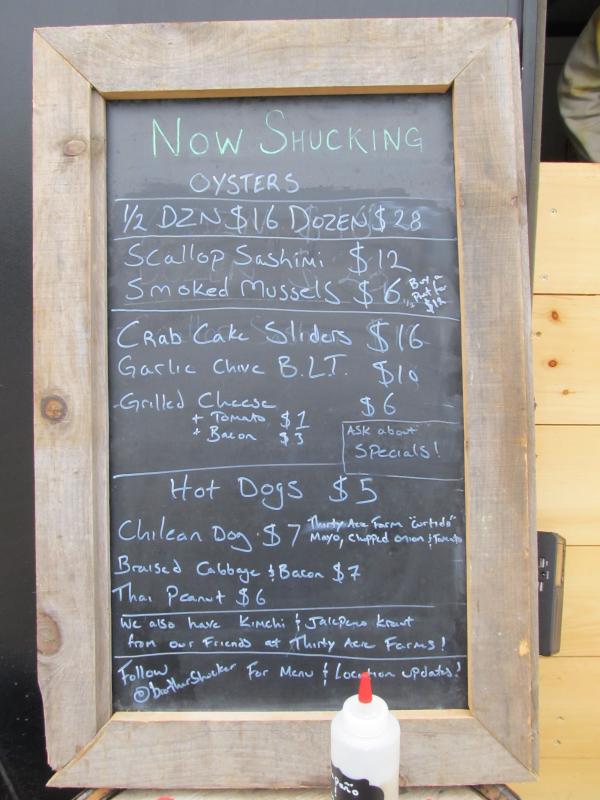 NOW SHUCKING
OYSTERS
1/2 DZN $16 DOZEN $28
Scallop Sashimi $12
Smoked Mussels $6
Crab Cake Sliders $16
Garlic Chive B.L.T. $10
Grilled Cheese $6
+ Tomato $1
+ Bacon $3
ASK about
Specials!
Hot Dogs $5
Chilean Dog $7 Thirty Acre Farm "curtido"
Mayo, Chopped onion & Tomato
Braised Cabbage & Bacon $7
Thai Peanut $6
We also have Kimchi & Jalepeno kraut
from our Friends at Thirty Acre Farms!
Follow
@brotherShucker For Menu & Location updates!